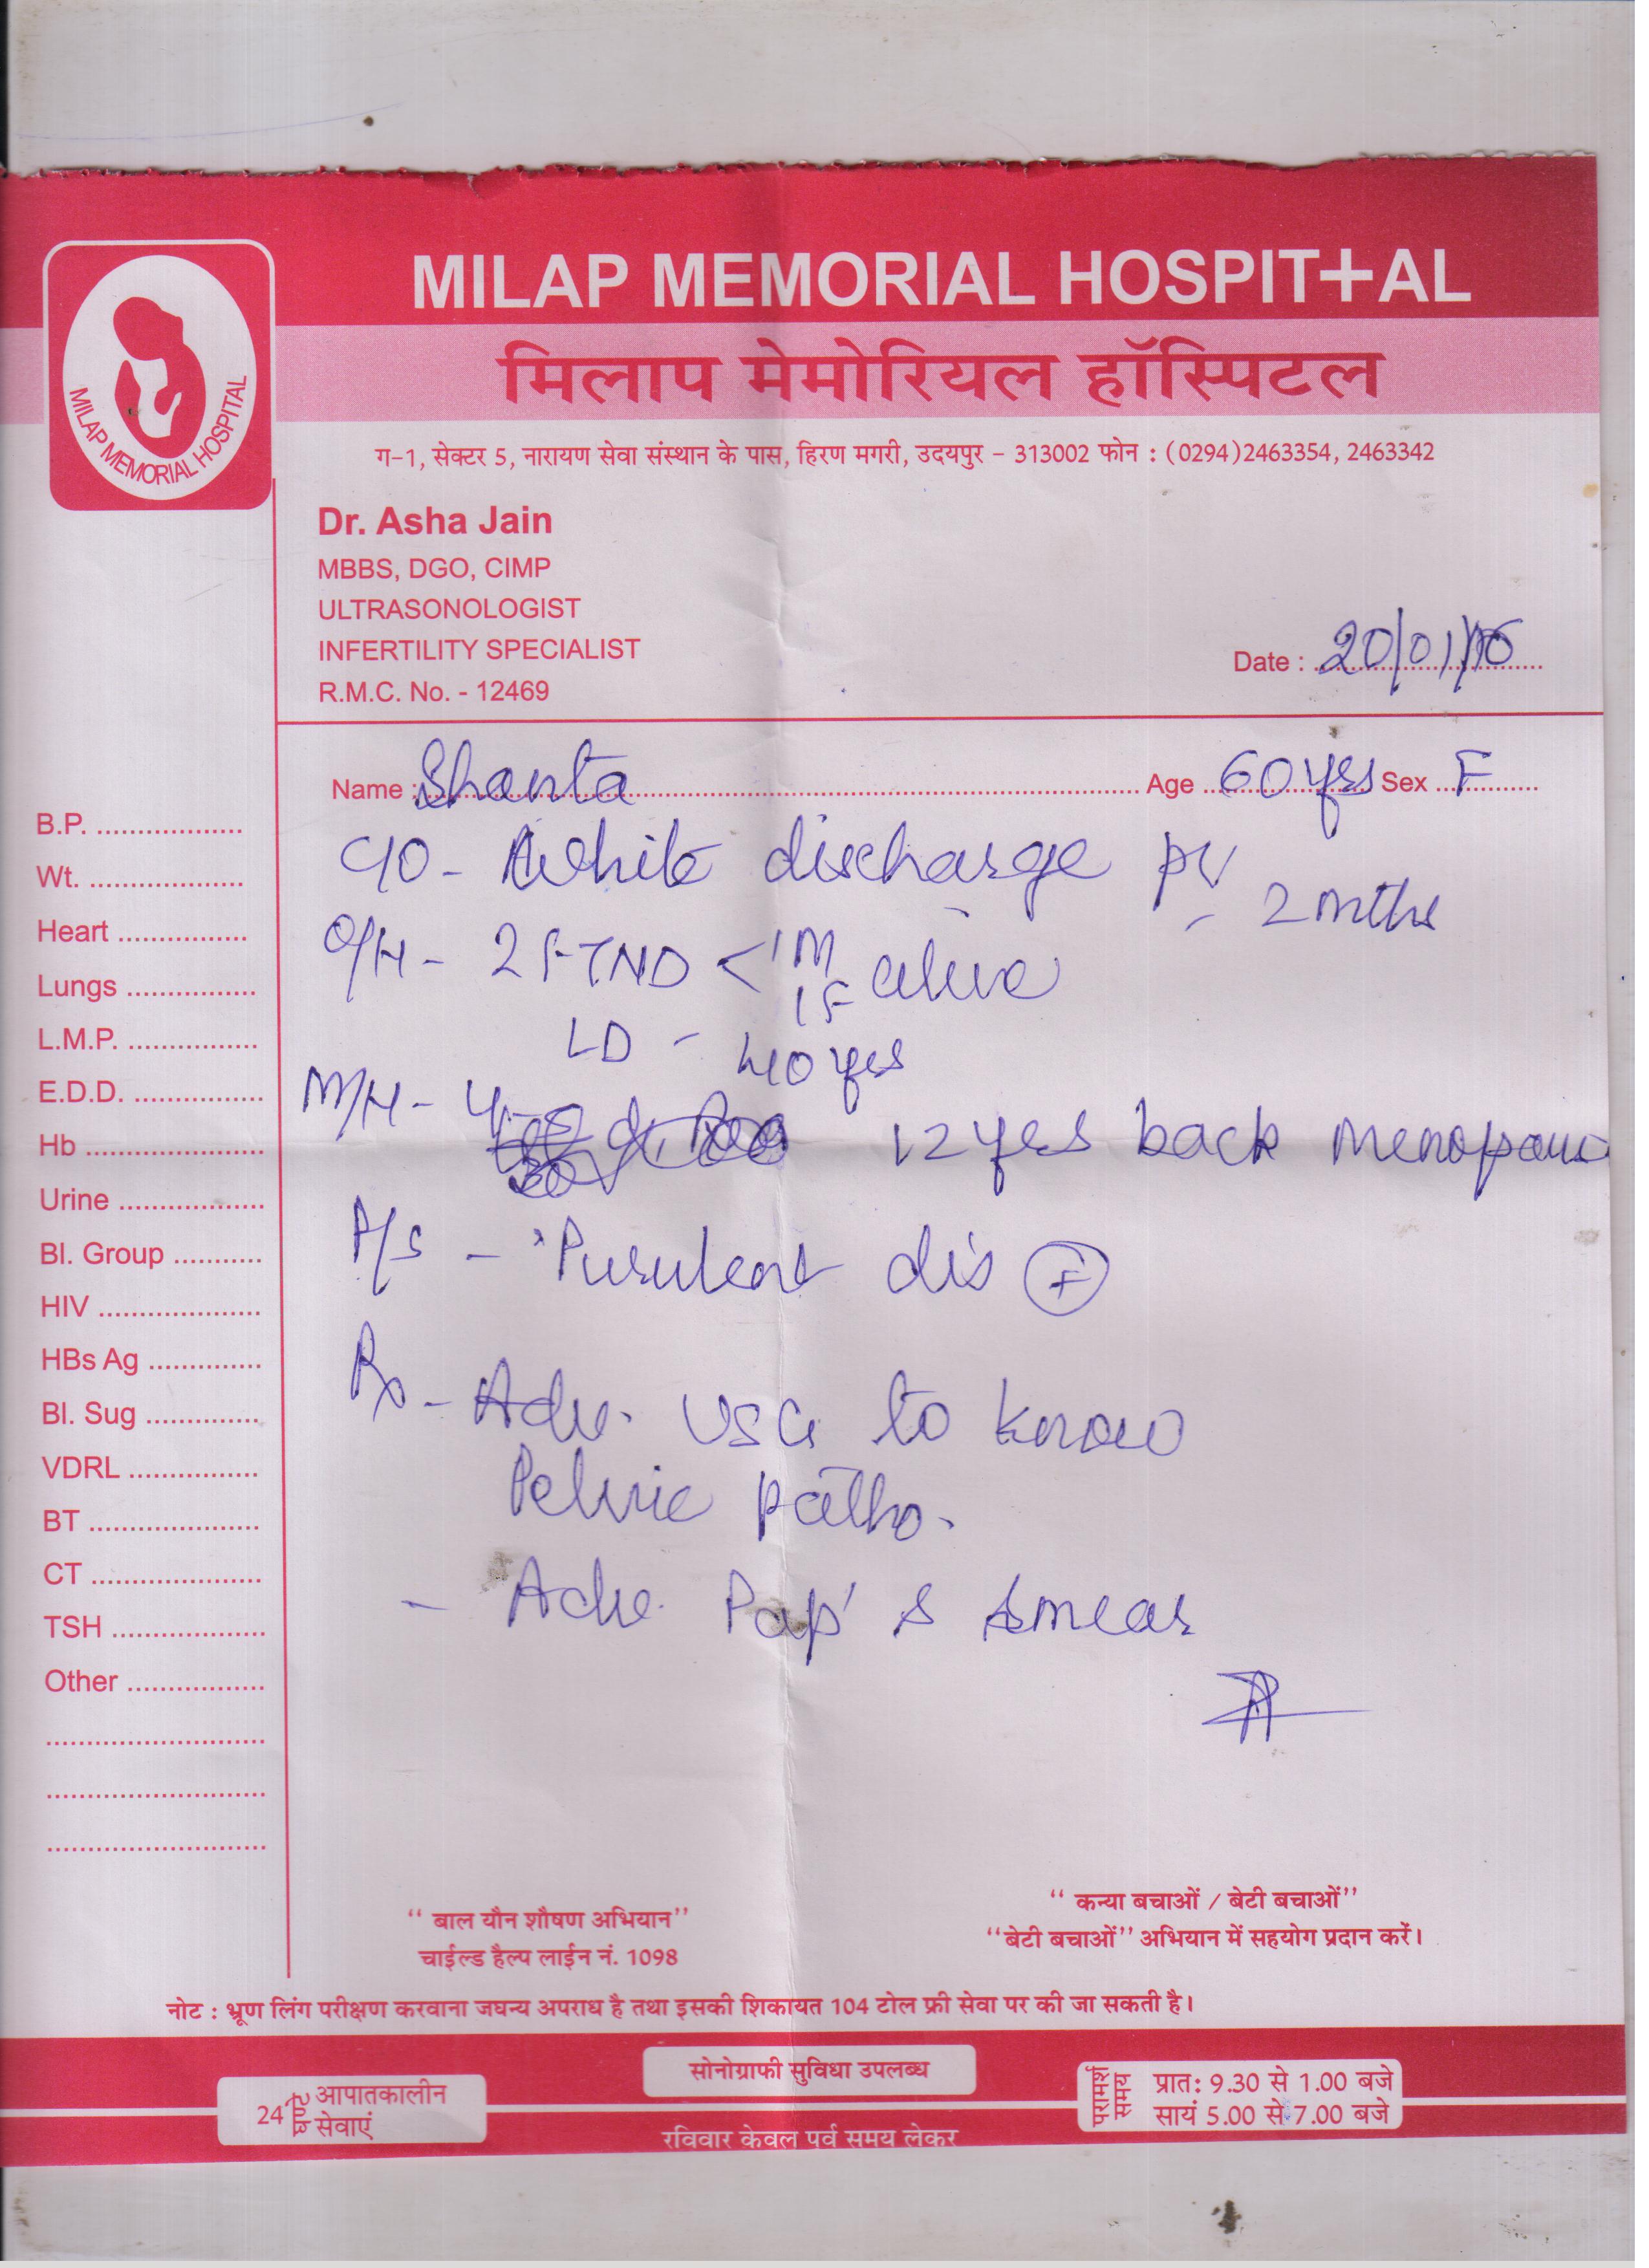 MILAP MEMORIAL HOSPITAL
मिलाप मेमोरियल हॉस्पिटल
MILAP MEMORIAL HOSPITAL
ग-1, सेक्टर 5, नारायण सेवा संस्थान के पास, हिरण मगरी, उदयपुर - 313002 फोन : (0294)2463354, 2463342
Dr. Asha Jain
MBBS, DGO, CIMP
ULTRASONOLOGIST
INFERTILITY SPECIALIST
R.M.C. No. - 12469
Date : 20/01/16
Name : Shanta Age 60 yrs Sex F
B.P.
Wt.
Heart
Lungs
L.M.P.
E.D.D.
Hb
Urine
Bl. Group
HIV
HBs Ag
Bl. Sug
VDRL
BT
CT
TSH
Other
C/O - White discharge PV
- 2 mths
O/H - 2 FTND < 1 M
1 F alive
LD - 40 yrs
M/H - 12 yrs back menopause
P/S - Purulent dis +
Rx - Adv. USG to know
Pelvic patho.
- Adv. Pap's smear
‘‘ बाल यौन शौषण अभियान’’
चाईल्ड हैल्प लाईन नं. 1098
‘‘ कन्या बचाओं / बेटी बचाओं’’
‘‘बेटी बचाओं’’ अभियान में सहयोग प्रदान करें।
नोट : भ्रूण लिंग परीक्षण करवाना जघन्य अपराध है तथा इसकी शिकायत 104 टोल फ्री सेवा पर की जा सकती है।
24 घण्टे आपातकालीन सेवाएं
सोनोग्राफी सुविधा उपलब्ध
रविवार केवल पूर्व समय लेकर
परामर्श समय
प्रात: 9.30 से 1.00 बजे
सायं 5.00 से 7.00 बजे